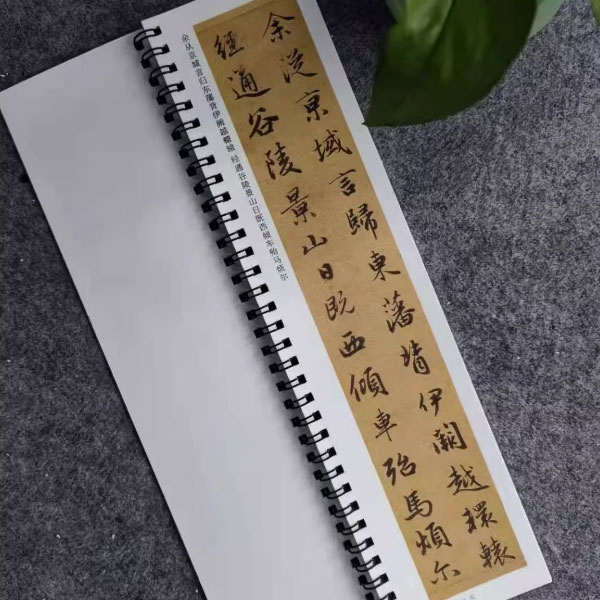 余從京域言歸東藩背伊闕越轘轅
經通谷陵景山日既西傾車殆馬煩尔
余从京域言归东藩背伊阙越轘辕 经通谷陵景山日既西倾车殆马烦尔